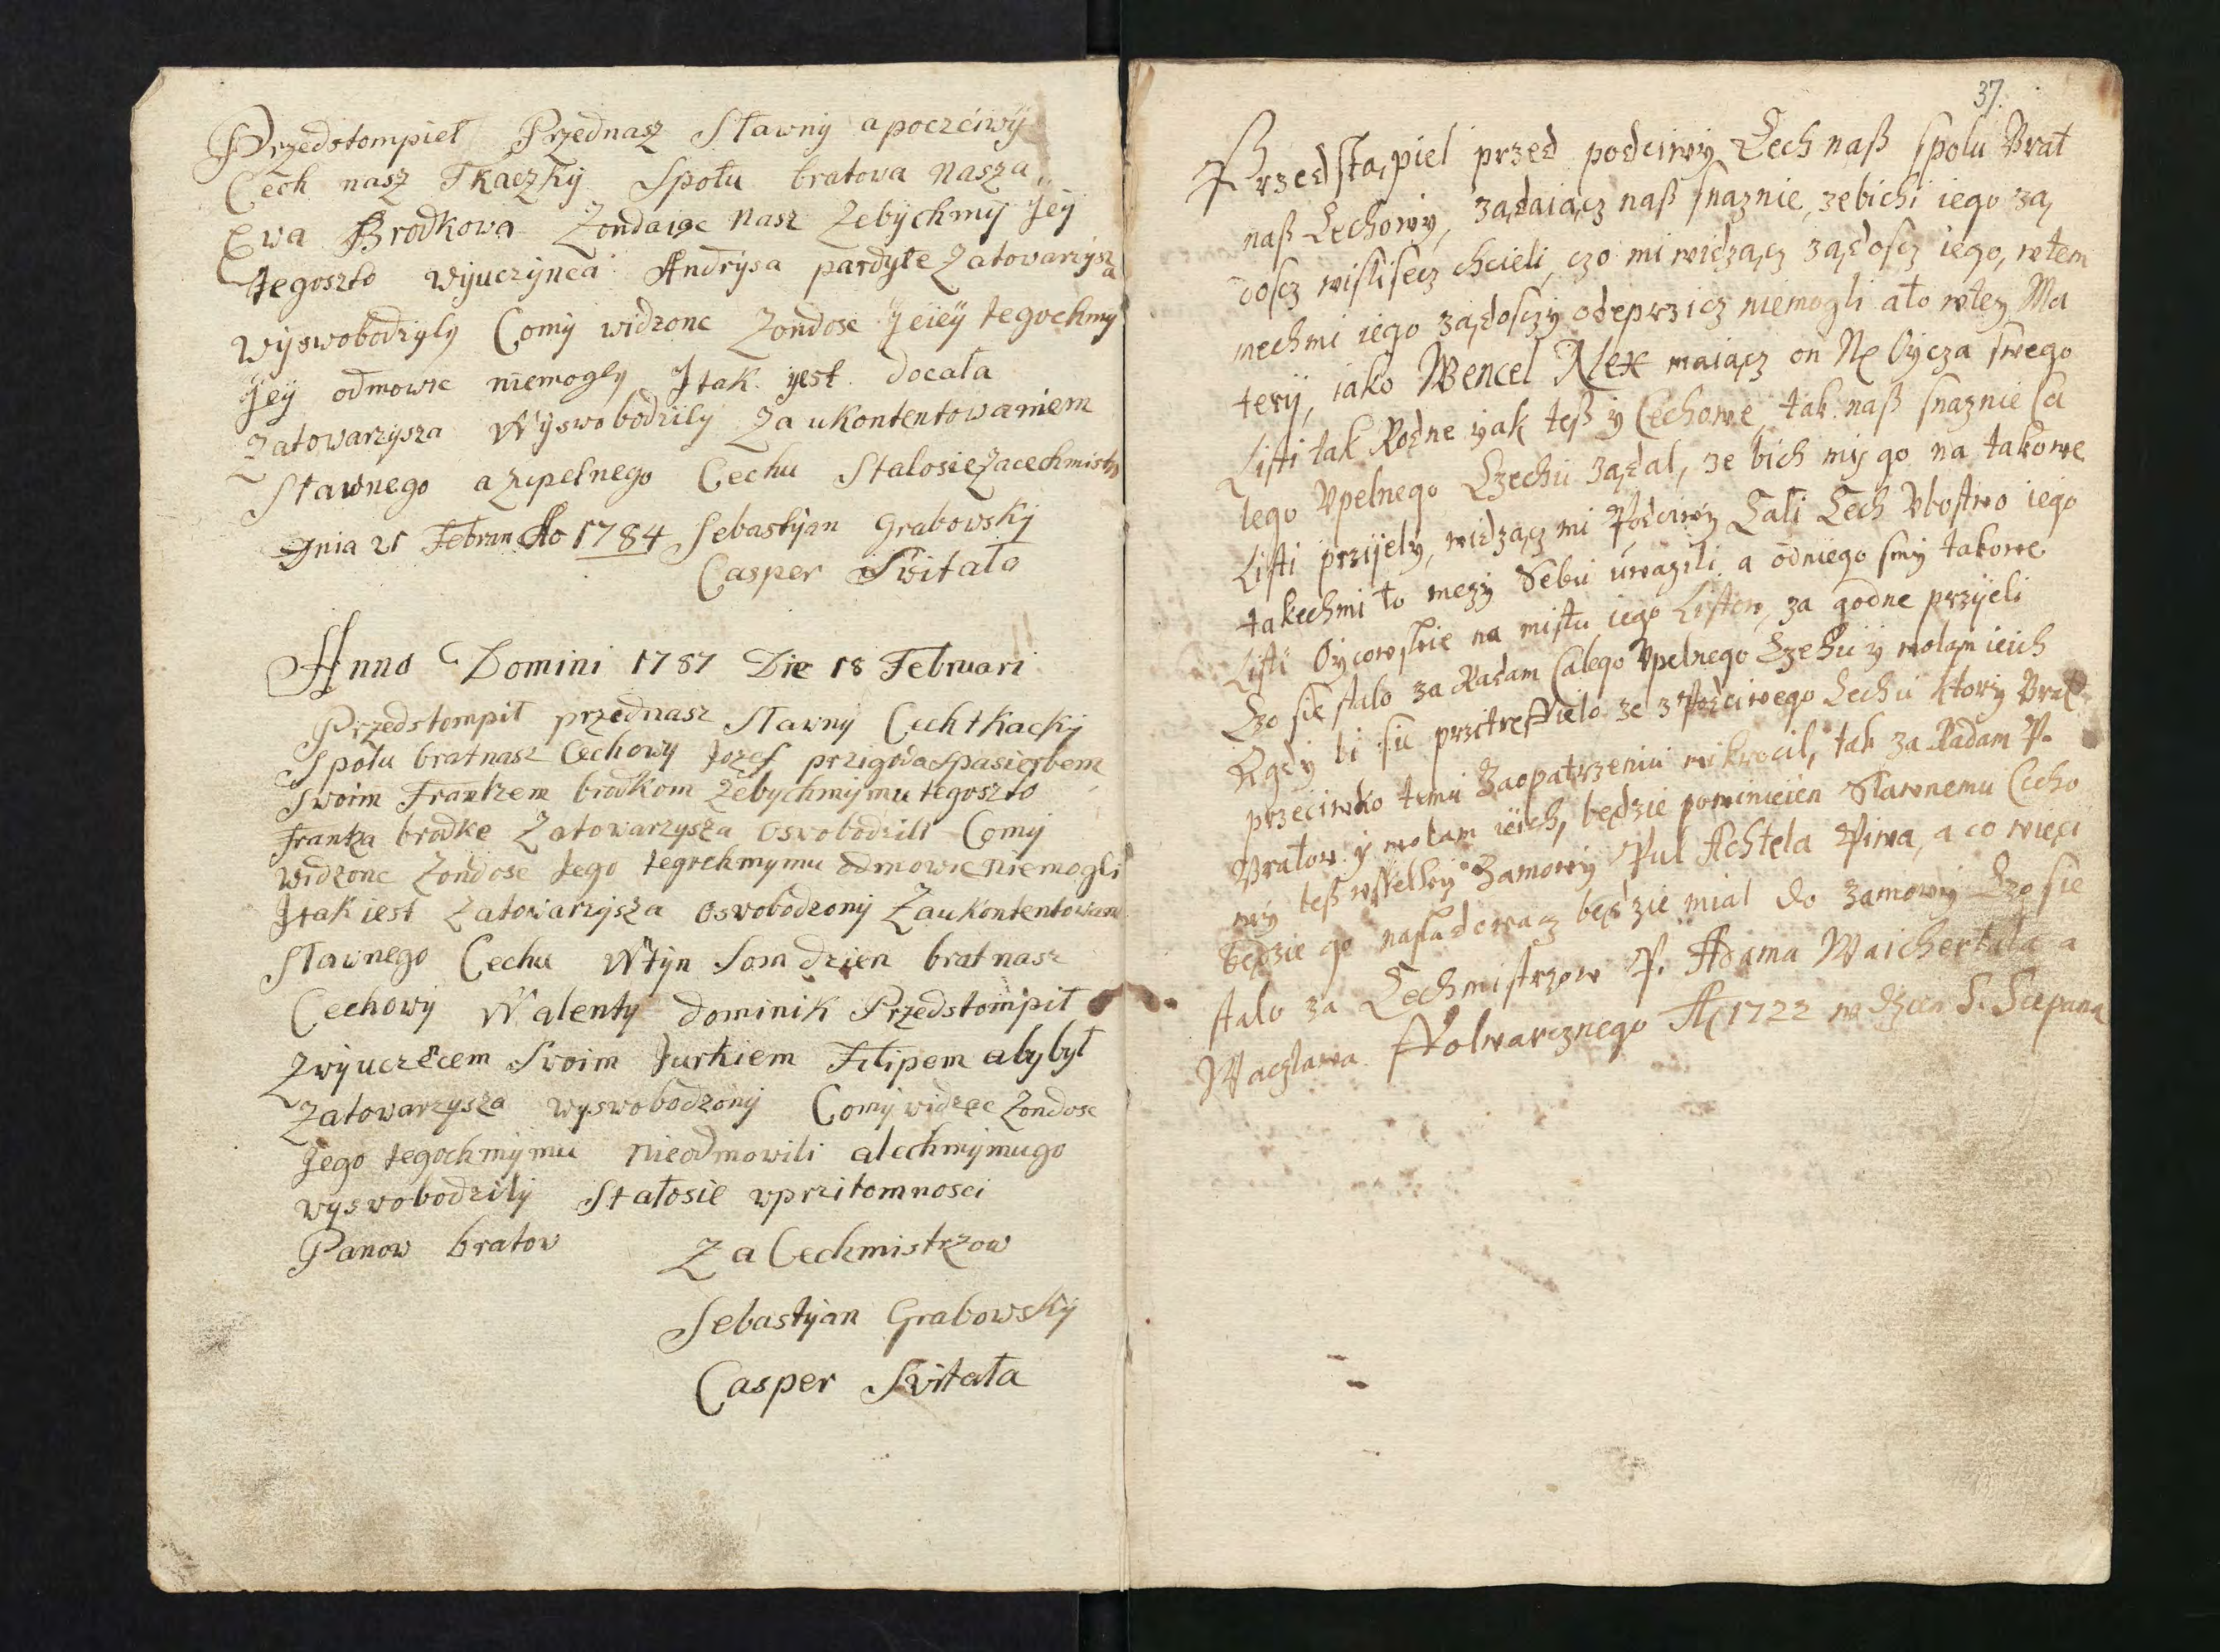 Przedstompieł Przednasz Sławny apoczciwÿ
Cech nasz Tkaczkÿ Społu bratowa nasza
Ewa Brodkowa Zondaiąc nasz Zebÿchmÿ Jeÿ
tegoszto wÿuczÿnca Andrÿsa pardÿłe Zatovarzÿsza
wÿswobodzÿly Comÿ widzonc Zondosc Jeieÿ tegochmy
Jeÿ odmowic niemogly Jtak yest docała
Zatowarzysza Wyswobodzilÿ Za ukontentowaniem
Sławnego a zupełnego Cechu Stalosie Zacechmistrz
Dnia 21 Februar Ao 1784 Sebastÿan Grabowskÿ
Casper Svitała
Anno Domini 1787 Die 18 Februari
Przedstompił przednasz Sławnÿ Cech tkackÿ
Społu bratnasz Cechowÿ Jozef przigoda Spasierbem
Swoim Frantzem brodkom Zebychmÿmu tegoszto
frantza brodke Zatowarzysza osvobodzili Comÿ
widzonc Zondosc Jego tegochmymu odmowic niemogli
Jtak iest Zatovarzÿsza osvobodzonÿ Zaukontentowan
Sławnego Cechu Wtÿn Som dzien bratnasz
Cechowÿ Walentÿ dominik Przedstompił
Zwÿuczecem Svoim Jurkiem Filipem abybył
Zatowarzysza wyswobodzonÿ Comÿ widzec Zondosc
Jego tegochmÿmu nieodmowili alechmÿmugo
wyswobodzilÿ Stałosie vprzitomnosci
Panow bratow Za Cechmistrzow
Sebastÿan Grabowskÿ
Casper Svitała
37.
Przedstąpiel przed podciwy Cech naß spolu Brat
naß Cechowy, ządaiącz naß snaznie, zebichi iego zą
doscz wislisecz chcieli, czo mi widzącz ządoscz iego, wtem
mechmi iego ządosczy odeprzicz niemogli ato wtey Ma
terÿ, iako Wencel Alex maiącz on Oycza swego
Listi tak Rodne yak teß y Cechowe tak naß snaznie Ca
lego Vpelnego Czechu ządal, ze bich my go na takowe
Listi przijely, widzącz mi Podciwy Cali Cech Vbostwo iego
takechmi to mezy Sebu uwazili a odniego smy takowe
Listi Oycowskie na mistu iego Listow, za godne przyieli
Czo sie stalo za Radam Calego Vpelnego Czehu y wolam ieich
Kgdy bi sie przitreffielo ze z Podciwego Cechu ktory Brat
przeciwko temu Zaopatrzeniu wikrocil, tak za Radam P.
Bratow y wolam ieich, będzie powinieien Slawnemu Cecho
wy teß wsselkiy Zamowy Pul Achtela Piwa, a co więci
będzie go nasladowacz będzie mial do Zamowy Czo sie
stalo za Cechmistrzow P. Adama Waichertala a
Waczlawa Ffolwarcznego A 1722 w dzien S. Sczepana